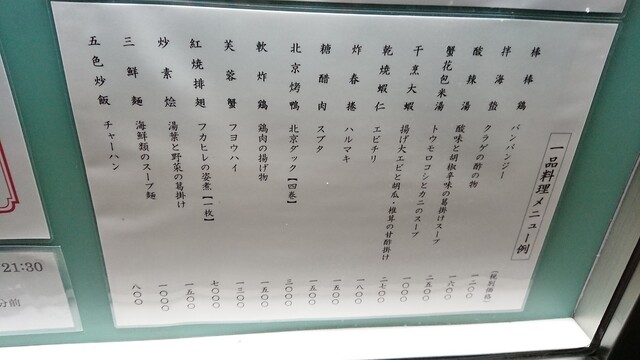 一品料理メニュー例
(税別価格)
棒棒鶏 バンバンジー 一二〇〇
拌海蜇 クラゲの酢の物 一六〇〇
酸辣湯 酸味と胡椒辛味の葛掛けスープ 二五〇〇
蟹花包米湯 トウモロコシとカニのスープ 一〇〇〇
干烹大蝦 揚げ大エビと胡瓜・椎茸の甘酢掛け 二七〇〇
乾焼蝦仁 エビチリ 一八〇〇
炸春捲 ハルマキ 一五〇〇
糖醋肉 スブタ 一五〇〇
北京烤鴨 北京ダック【四巻】 三〇〇〇
軟炸鶏 鶏肉の揚げ物 一五〇〇
芙蓉蟹 フヨウハイ 一三〇〇
紅焼排翅 フカヒレの姿煮【一枚】 七〇〇〇
炒素烩 湯葉と野菜の葛掛け 一五〇〇
三鮮麺 海鮮類のスープ麺 一〇〇〇
五色炒飯 チャーハン 八〇〇
21:30
分前